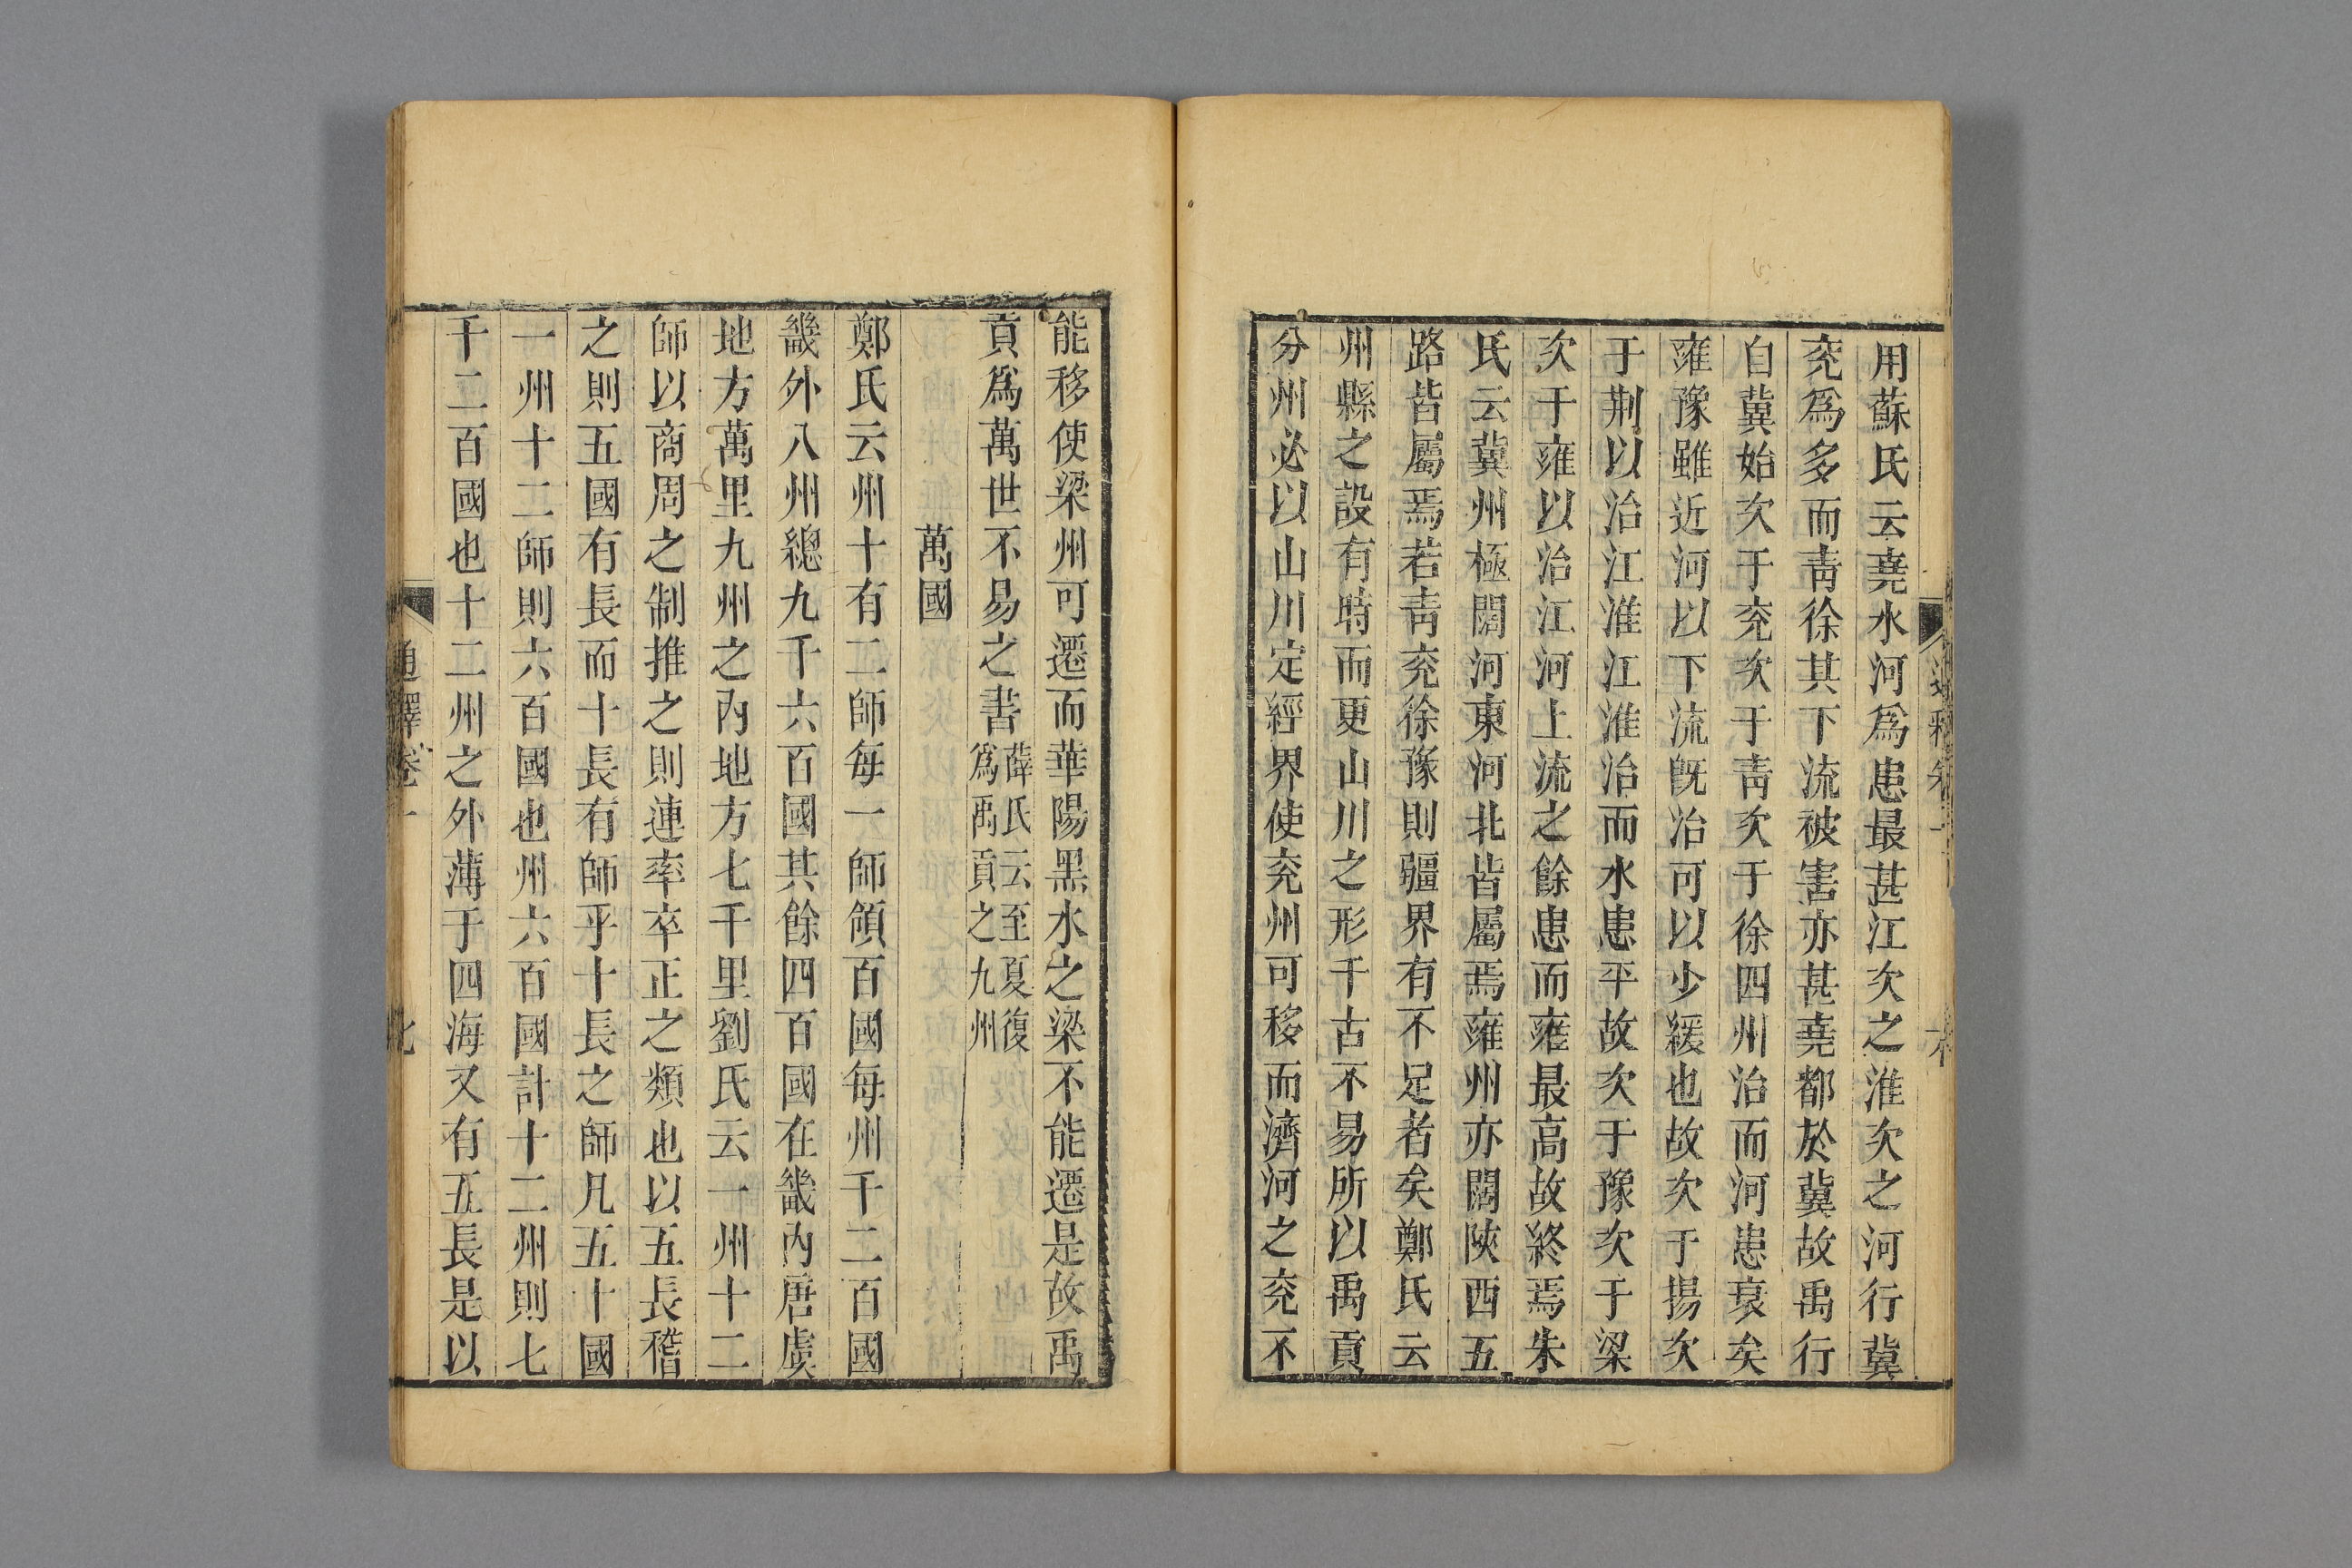 用蘇氏云堯水河爲患最甚江次之淮次之河行冀
兖爲多而靑徐其下流被害亦甚堯都於冀故禹行
自冀始次于兖次于靑次于徐四州治而河患衰矣
雍豫雖近河以下流旣治可以少緩也故次于揚次
于荆以治江淮江淮治而水患平故次于豫次于梁
次于雍以治江河上流之餘患而雍最高故終焉朱
氏云冀州極闊河東河北皆屬焉雍州亦闊陝西五
路皆屬焉若靑兖徐豫則疆界有不足者矣鄭氏云
州縣之設有時而更山川之形千古不易所以禹貢
分州必以山川定經界使兖州可移而濟河之兖不
能移使梁州可遷而華陽黑水之梁不能遷是故禹
貢爲萬世不易之書薛氏云至夏復
爲禹貢之九州
萬國
鄭氏云州十有二師每一師領百國每州千二百國
畿外八州總九千六百國其餘四百國在畿內唐虞
地方萬里九州之內地方七千里劉氏云一州十二
師以商周之制推之則連率卒正之類也以五長稽
之則五國有長而十長有師乎十長之師凡五十國
一州十二師則六百國也州六百國計十二州則七
千二百國也十二州之外薄于四海又有五長是以
通釋卷一